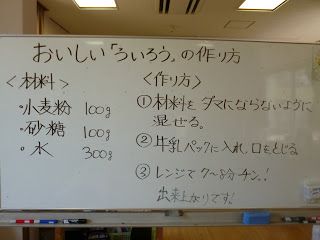 おいしい「ういろう」の作り方
<材料>
・小麦粉 100g
・砂糖 100g
・水 300g
<作り方>
①材料をダマにならないように
混ぜる。
②牛乳パックに入れ、口をとじる
③レンジで7〜8分チン!
出来上がりです!